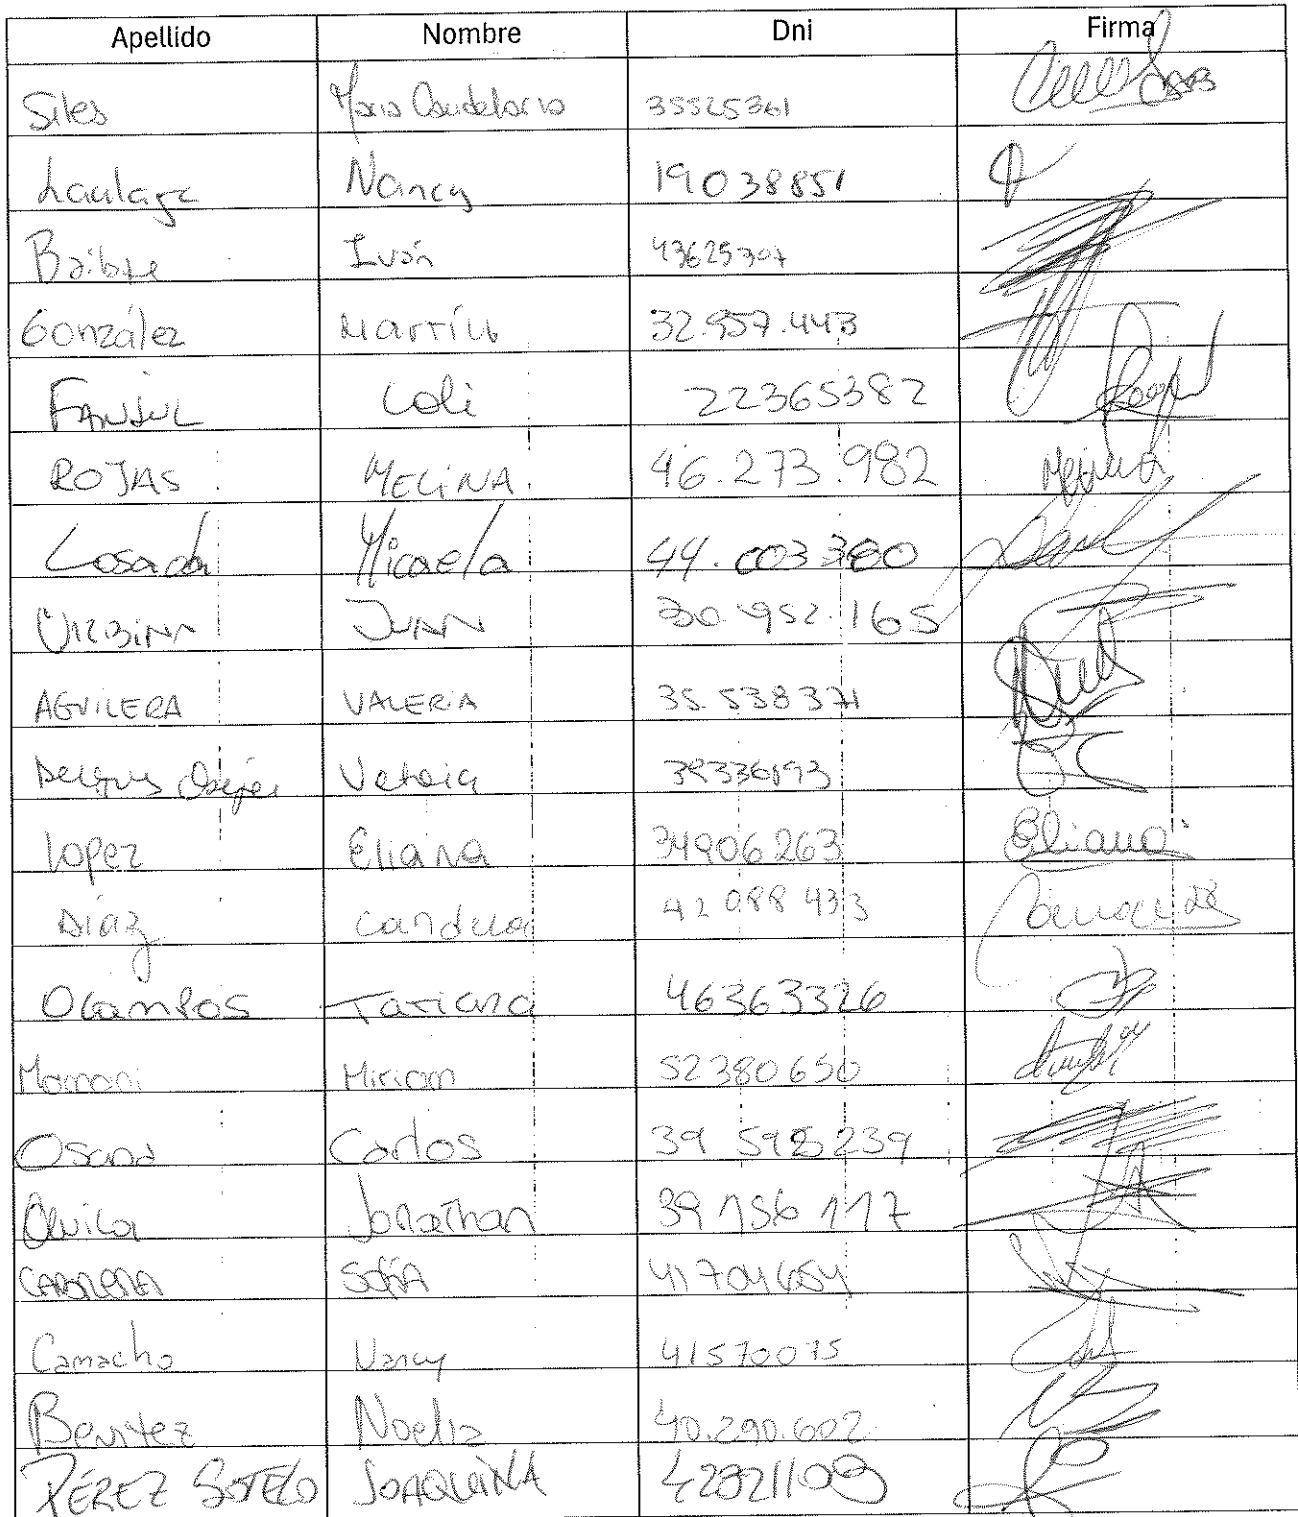 Apellido Nombre Dni Firma
Siles Maria Candelaria 35525361
Laulage Nancy 19038851
Iván 43625307
González Martín 32.957.443
FANJUL Loli 22365382
ROJAS MELINA 46.273.982 Melina
Losada Micaela 44.003380
URBINA JUAN 30.952.165
AGUILERA VALERIA 35.538371
39336193
lopez Eliana 34906263 Eliana
Diaz candela 42 088 433
Ocampos Tatiana 46363326
Mamani Miriam 52380650
Osana Carlos 39 595239
Jonathan 39 156 117
CARDRERA SOFÍA 41704654
Camacho Nancy 41570075
Benitez Noelia 40.290.602
PÉREZ SOTELO JOAQUINA 42321109